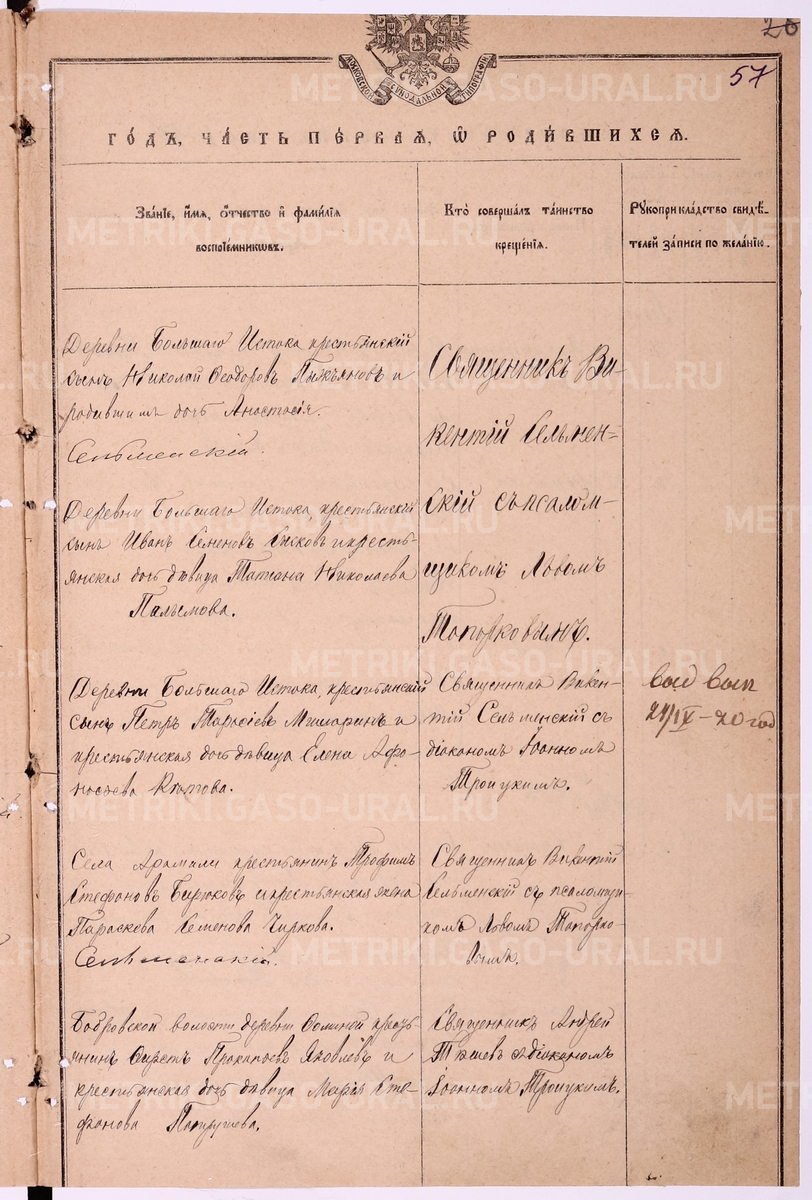 26
57
МОСКОВСКОЙ СѴНОДАЛЬНОЙ ТИПОГРАФІИ
ГО́ДЪ, ЧА́СТЬ ПЕ́РВАЯ, Ѽ РОДИ́ВШИХСЯ.
Зва́нїе, и́мя, о́тчество и҆ фами́лїя
воспрїе́мниковъ.
Кто̀ соверша́лъ та́инство
креще́нїя.
Рꙋкоприкла́дство свидѣ́-
телей за́писи по жела́нїю.
Деревни Большаго Истока крестьянскій
сынъ Николай Ѳеодоровъ и
дочь Анастасія.
Сельменскій.
Священникъ Ви-
кентій Сельмен-
скій съ псалом-
щикомъ Львомъ
Топорковымъ.
Деревни Большаго Истока, крестьянскій
сынъ Иванъ Семеновъ и кресть-
янская дочь дѣвица Татіана Николаева
Палымова.
Деревни Большаго Истока, крестьянскій
сынъ Петръ Тарасіевъ Мишаринъ и
крестьянская дочь дѣвица Елена Афо-
насьева
Священникъ Викен-
тій Сельменскій съ
діакономъ Іоанномъ
Троицкимъ.
выд вып
20 год
Села Арамили крестьянинъ Трофимъ
Стефановъ Бирюковъ и крестьянская жена
Параскева Семенова Чиркова.
Сельменскій.
Священникъ Викентій
Сельменскій съ псаломщи-
комъ Львомъ Топорко-
вымъ.
Бобровской волости деревни Ѳоминой кресть-
янинъ Прокопьевъ Яковлевъ и
крестьянская дочь дѣвица Марія Сте-
фанова Патрушева.
Священникъ Андрей
съ діакономъ
Іоанномъ Троицкимъ.
METRIKI.GASO-URAL.RU